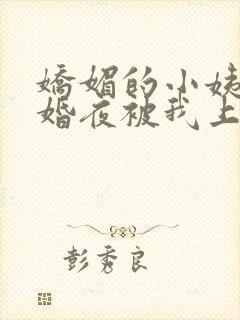 嬌媚的小姨
婚夜被我上
彭秀良